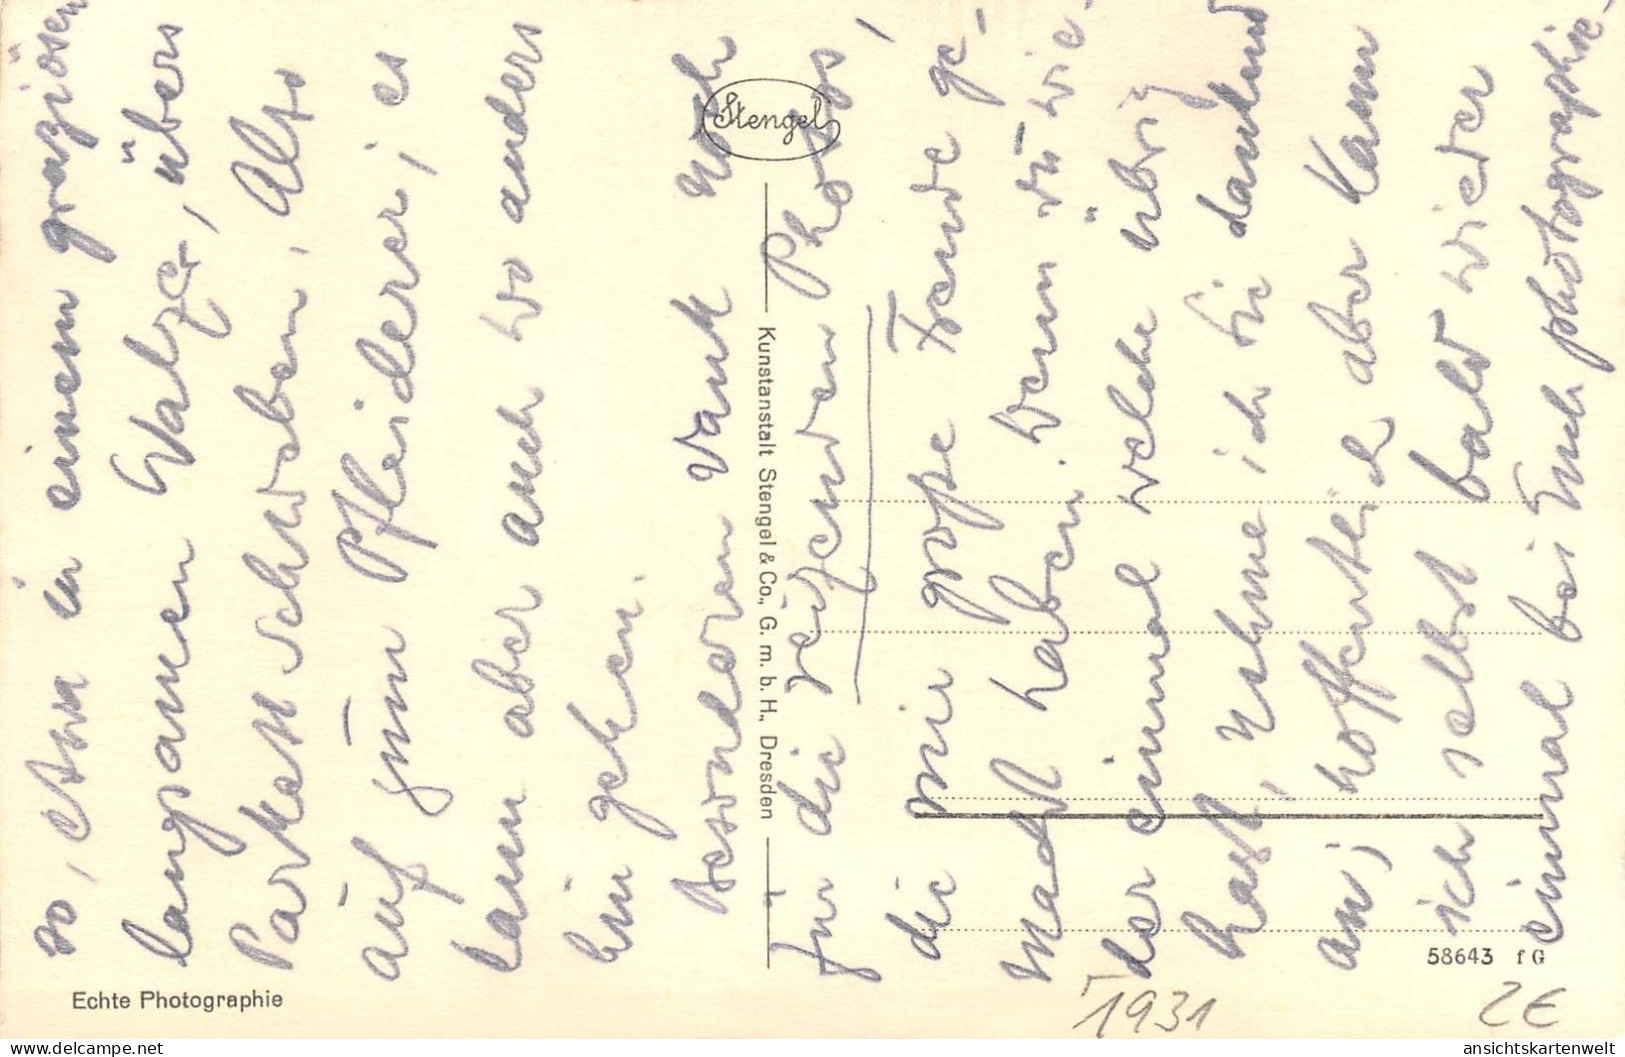 so, etwa in einem graziösen
langsamen Walzer, übers
Parkett schweben. Also
auf zum Pfleiderer; es
kann aber auch wo anders
hin gehen.
Besonderen Dank noch
für die reizenden Photos,
die mir große Freude ge-
macht haben. Wenn Du wie-
der einmal welche übrig
hast, nehme ich sie dankend
an; hoffentlich aber kann
ich selbst bald wieder
einmal bei Euch photographie-
Stengel
Kunstanstalt Stengel & Co., G. m. b. H., Dresden
Echte Photographie
58643 f G
1931
2€
ansichtskartenwelt